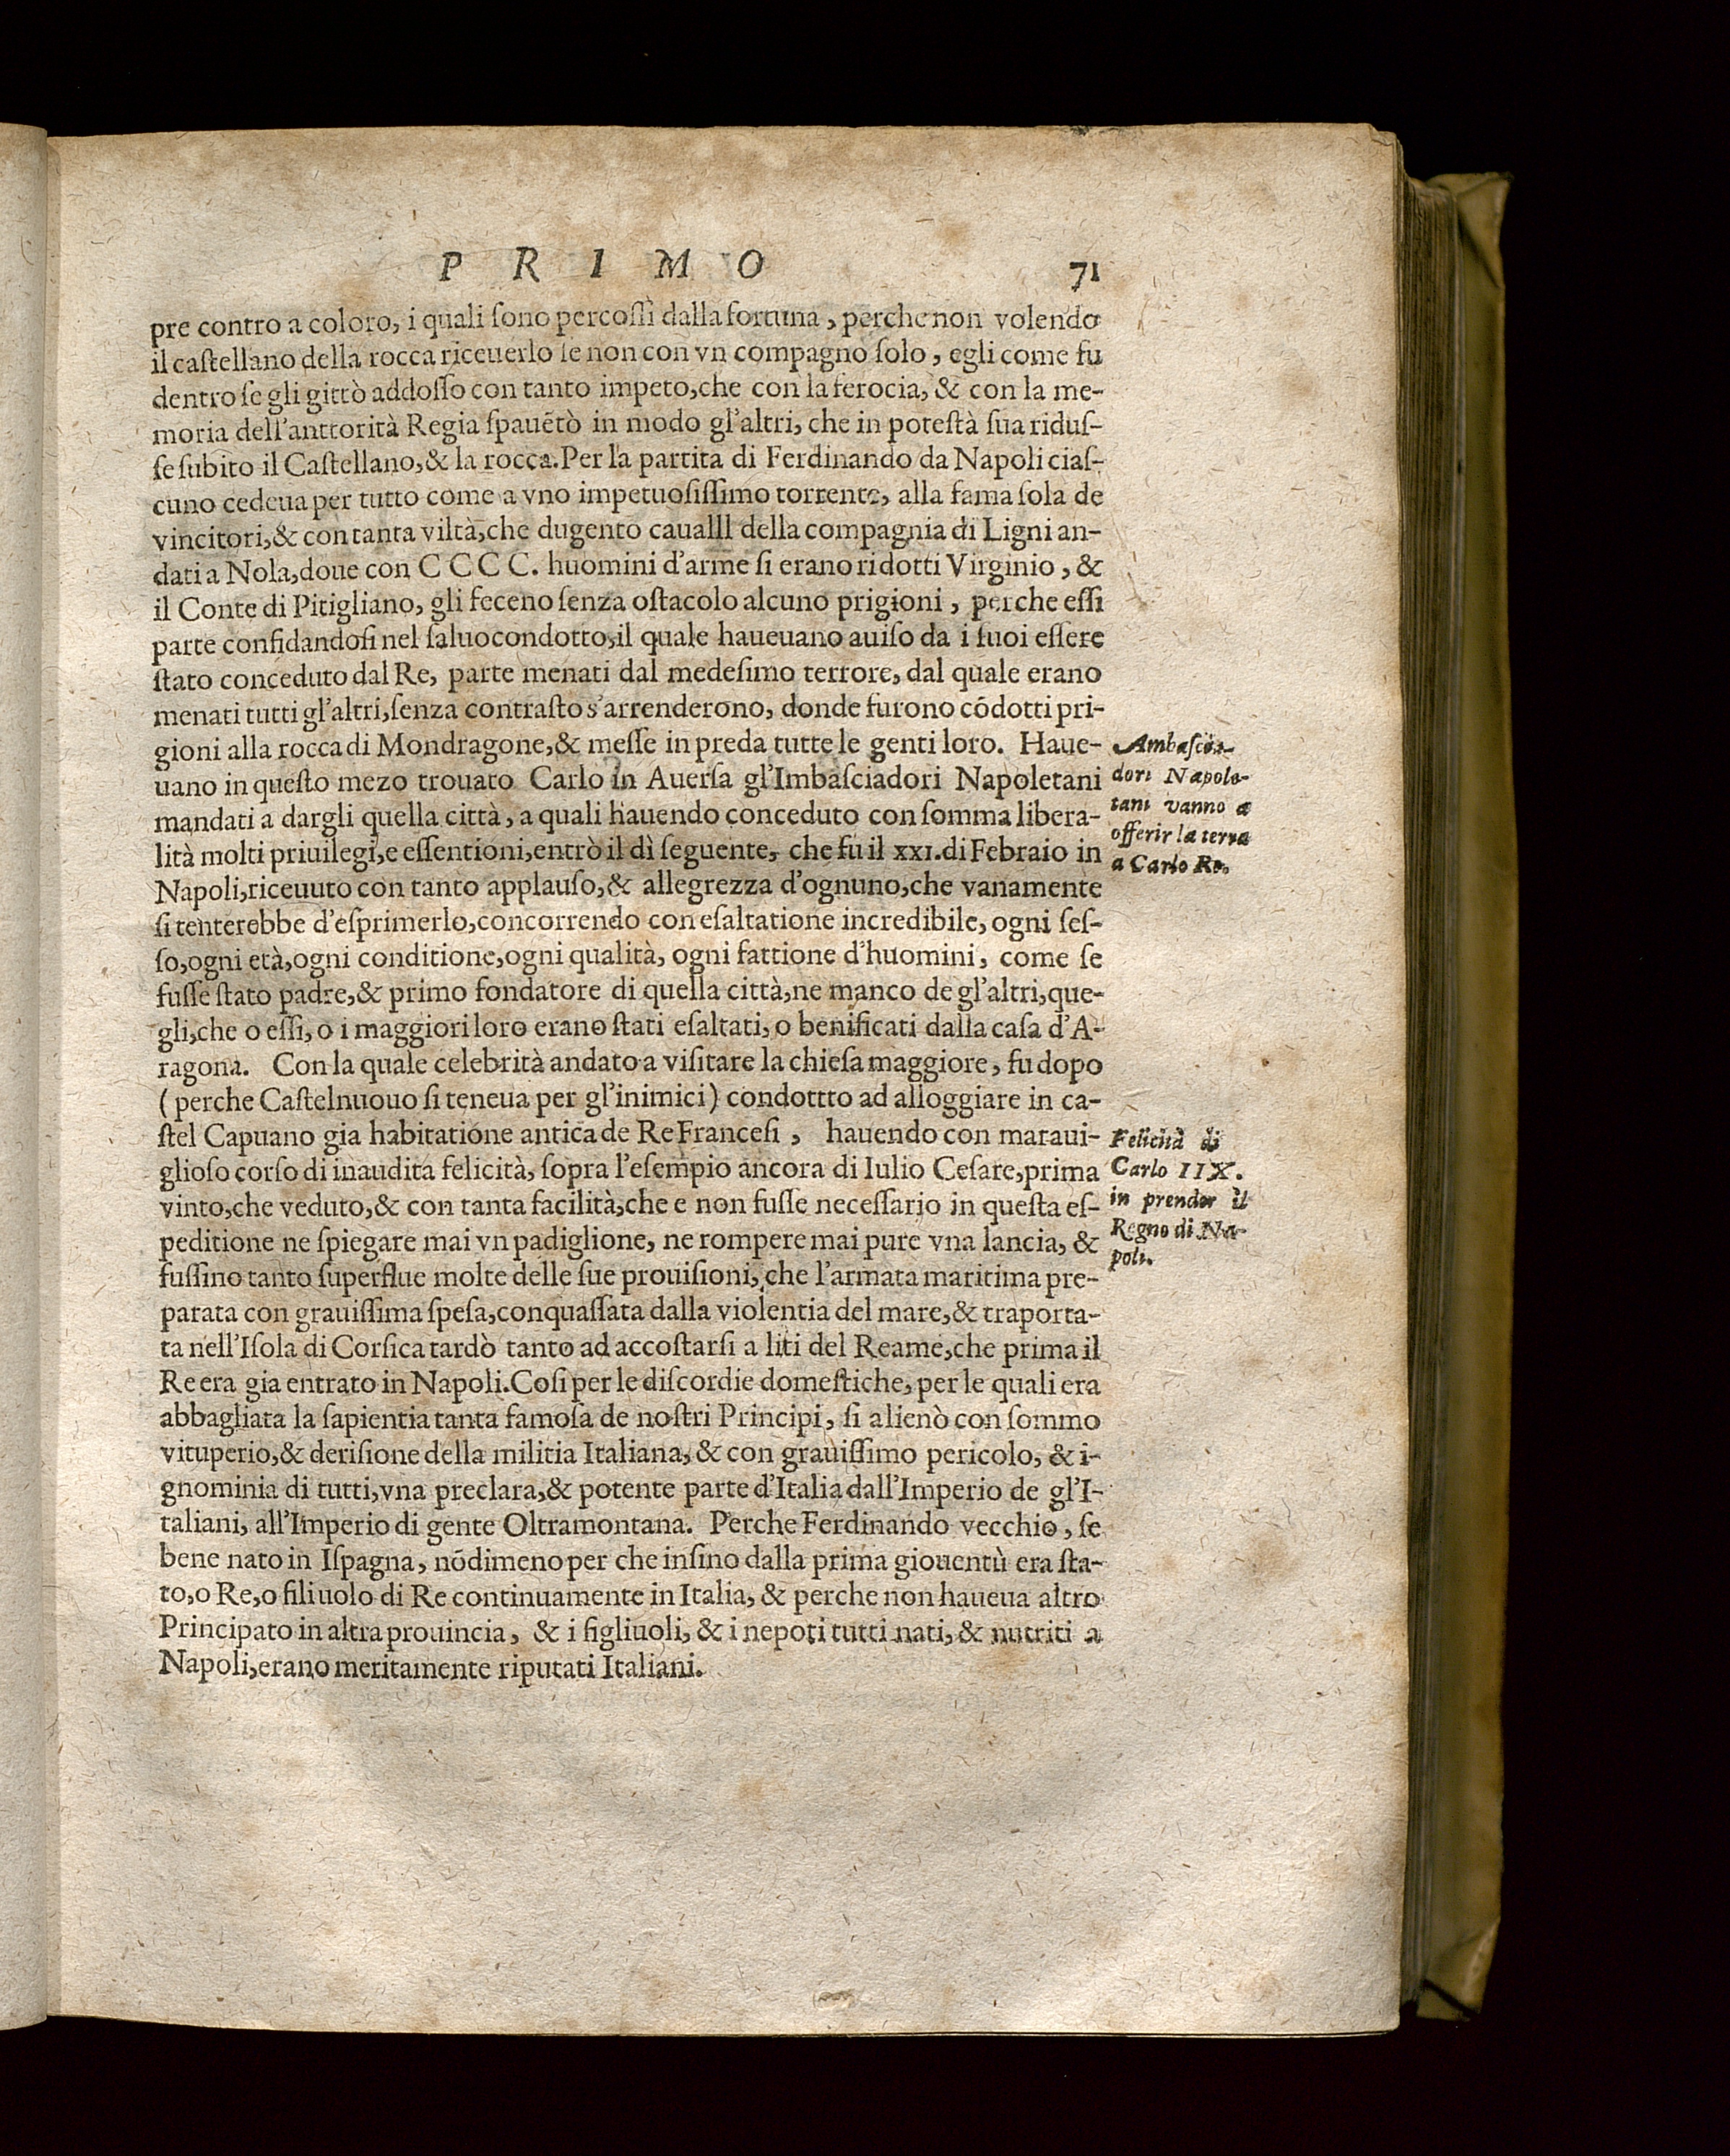 PRIMO 71
pre contro a coloro, i quali ſono percoſſi dalla fortuna, perche non volendo
il caſtellano della rocca riceuerlo ſe non con vn compagno ſolo, egli come fu
dentro ſe gli gittò addoſſo con tanto impeto, che con la ferocia, & con la me-
moria dell'anttorità Regia ſpauẽtò in modo gl'altri, che in poteſtà ſua riduſ-
ſe ſubito il Caſtellano, & la rocca. Per la partita di Ferdinando da Napoli ciaſ-
cuno cedeua per tutto come a vno impetuoſiſſimo torrente, alla fama ſola de
vincitori, & con tanta viltà, che dugento caualll della compagnia di Ligni an-
dati a Nola, doue con CCCC. huomini d'arme ſi erano ridotti Virginio, &
il Conte di Pitigliano, gli feceno ſenza oſtacolo alcuno prigioni, perche eſſi
parte confidandoſi nel ſaluocondotto, il quale haueuano auiſo da i ſuoi eſſere
ſtato conceduto dal Re, parte menati dal medeſimo terrore, dal quale erano
menati tutti gl'altri, ſenza contraſto s'arrenderono, donde furono cõdotti pri-
gioni alla rocca di Mondragone, & meſſe in preda tutte le genti loro. Haue-
uano in queſto mezo trouato Carlo in Auerſa gl'Imbaſciadori Napoletani
mandati a dargli quella città, a quali hauendo conceduto con ſomma libera-
lità molti priuilegi, e eſſentioni, entrò il dì ſeguente, che fu il XXI. di Febraio in
Napoli, riceuuto con tanto applauſo, & allegrezza d'ognuno, che vanamente
ſi tenterebbe d'eſprimerlo, concorrendo con eſaltatione incredibile, ogni ſeſ-
ſo, ogni età, ogni conditione, ogni qualità, ogni fattione d'huomini, come ſe
fuſſe ſtato padre, & primo fondatore di quella città, ne manco de gl'altri, que-
gli, che o eſſi, o i maggiori loro erano ſtati eſaltati, o benificati dalla caſa d'A-
ragona. Con la quale celebrità andato a viſitare la chieſa maggiore, fu dopo
(perche Caſtelnuouo ſi teneua per gl'inimici) condottto ad alloggiare in ca-
ſtel Capuano gia habitatione antica de Re Franceſi, hauendo con maraui-
glioſo corſo di inaudita felicità, ſopra l'eſempio ancora di Iulio Ceſare, prima
vinto, che veduto, & con tanta facilità, che e non fuſſe neceſſario in queſta eſ-
peditione ne ſpiegare mai vn padiglione, ne rompere mai pure vna lancia, &
fuſſino tanto ſuperflue molte delle ſue prouiſioni, che l'armata maritima pre-
parata con grauiſſima ſpeſa, conquaſſata dalla violentia del mare, & traporta-
ta nell'Iſola di Corſica tardò tanto ad accoſtarſi a liti del Reame, che prima il
Re era gia entrato in Napoli. Coſi per le diſcordie domeſtiche, per le quali era
abbagliata la ſapientia tanta famoſa de noſtri Principi, ſi alienò con ſommo
vituperio, & deriſione della militia Italiana, & con grauiſſimo pericolo, & i-
gnominia di tutti, vna preclara, & potente parte d'Italia dall'Imperio de gl'I-
taliani, all'Imperio di gente Oltramontana. Perche Ferdinando vecchio, ſe
bene nato in Iſpagna, nõdimeno per che inſino dalla prima giouentù era ſta-
to, o Re, o filiuolo di Re continuamente in Italia, & perche non haueua altro
Principato in altra prouincia, & i figliuoli, & i nepoti tutti nati, & nutriti a
Napoli, erano meritamente riputati Italiani.
Ambaſcia-
dori Napole-
tani vanno a
offerir la terra
a Carlo Re.
Felicità di
Carlo IIX.
in prender il
Regno di Na-
poli.